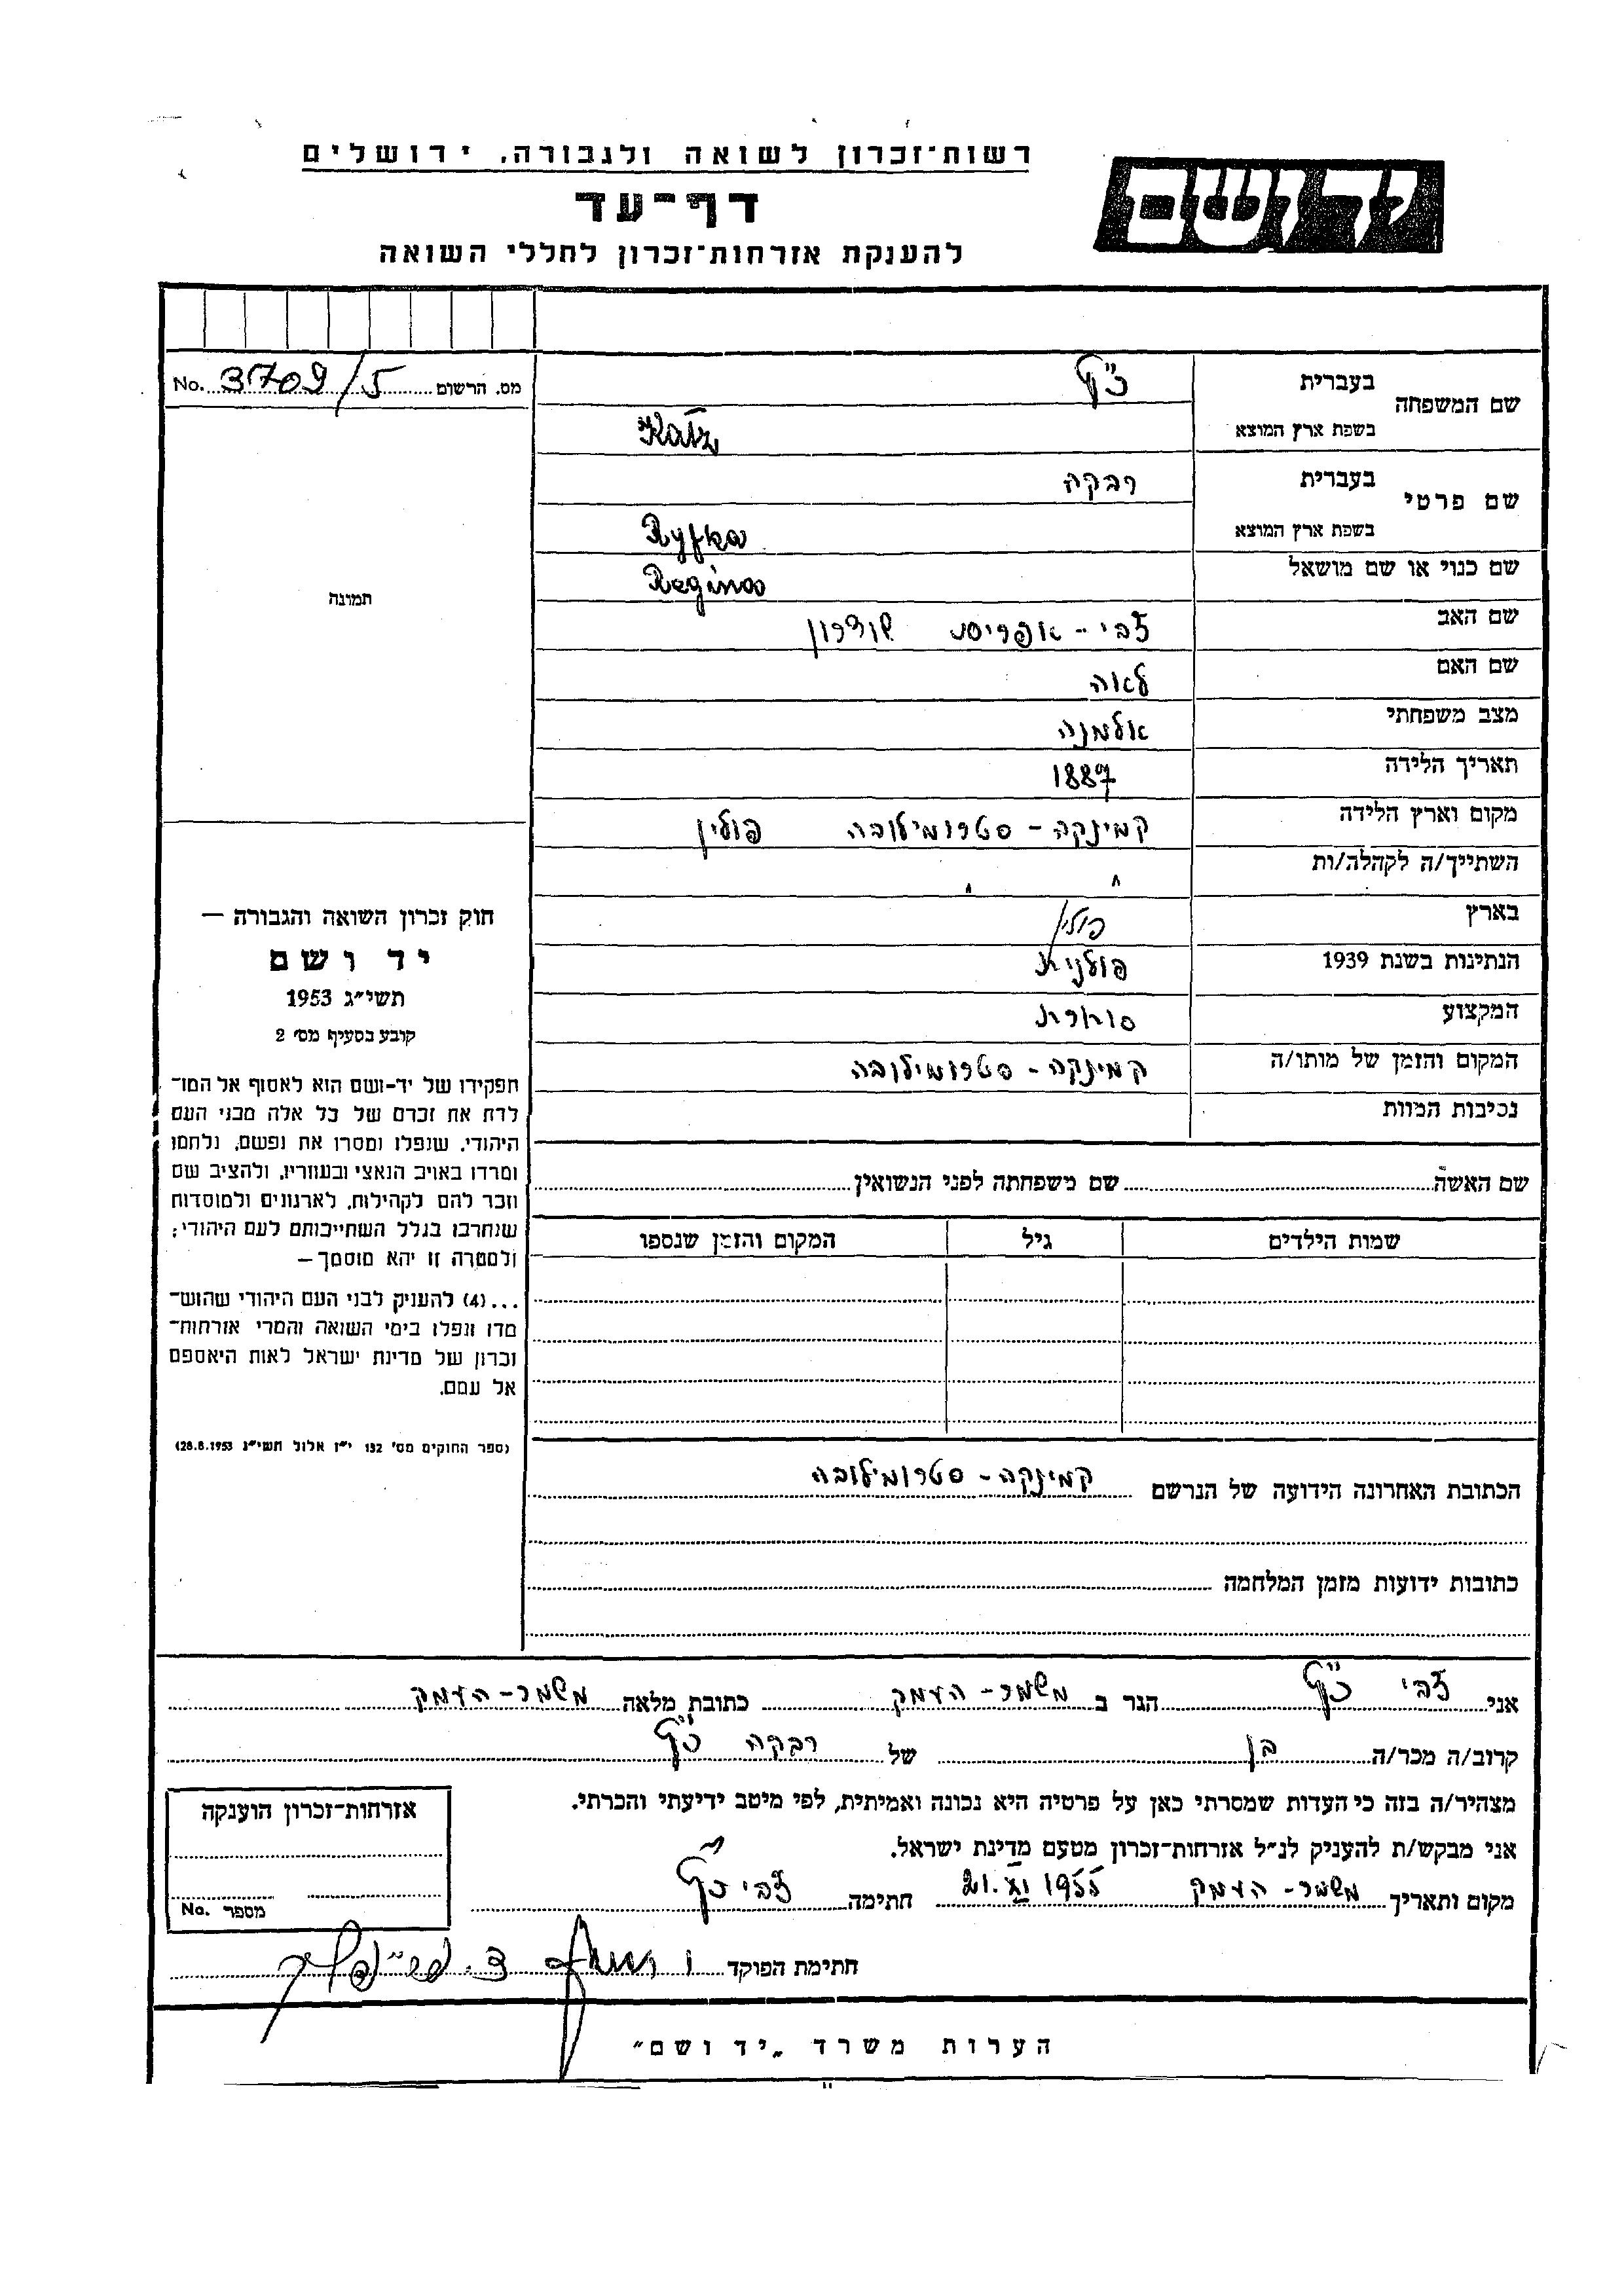 רשות־זכרון לשואה ולגבורה, ירושלים
יד ושם
דף־עד
להענקת אזרחות־זכרון לחללי השואה
מס. הרשום 3709/5 No.
תמונה
שם המשפחה
בעברית כ"ץ
בשפת ארץ המוצא Katz
שם פרטי
בעברית רבקה
בשפת ארץ המוצא Ryfka
שם כנוי או שם מושאל Regina
שם האב צבי - אפריים
שם האם לאה
מצב משפחתי אלמנה
תאריך הלידה 1887
מקום וארץ הלידה קמינקה - סטרומילובה פולין
השתייך/ה לקהלה/ות " "
בארץ פולין
הנתינות בשנת 1939 פולנית
המקצוע סוחרת
המקום והזמן של מותו/ה קמינקה - סטרומילובה
נכיבות המוות
שם האשה שם משפחתה לפני הנשואין
שמות הילדים גיל המקום והזמן שנספו
הכתובת האחרונה הידועה של הנרשם קמינקה - סטרומילובה
כתובות ידועות מזמן המלחמה
חוק זכרון השואה והגבורה —
יד ושם
תשי"ג 1953
קובע בסעיף מס׳ 2
תפקידו של יד-ושם הוא לאסוף אל המו־
לדת את זכרם של כל אלה מבני העם
היהודי, שנפלו ומסרו את נפשם, נלחמו
ומרדו באויב הנאצי ובעוזריו, ולהציב שם
וזכר להם לקהילות, לארגונים ולמוסדות
שנחרבו בגלל השתייכותם לעם היהודי;
ולמטרה זו יהא מוסמך —
...(4) להעניק לבני העם היהודי שהוש־
מדו ונפלו בימי השואה והמרי אזרחות־
זכרון של מדינת ישראל לאות היאספם
אל עמם.
(ספר החוקים מס׳ 132 י"ז אלול תשי"ג 28.8.1953)
אני צבי כ"ץ הגר ב משמר-העמק כתובת מלאה משמר-העמק
קרוב/ה מכר/ה בן של רבקה כ"ץ
מצהיר/ה בזה כי העדות שמסרתי כאן על פרטיה היא נכונה ואמיתית, לפי מיטב ידיעתי והכרתי.
אני מבקש/ת להעניק לנ"ל אזרחות־זכרון מטעם מדינת ישראל.
מקום ותאריך משמר-העמק 21.XI 1955 חתימה צבי כ"ץ
אזרחות־זכרון הוענקה
מספר No.
חתימת הפוקד
הערות משרד „יד ושם"